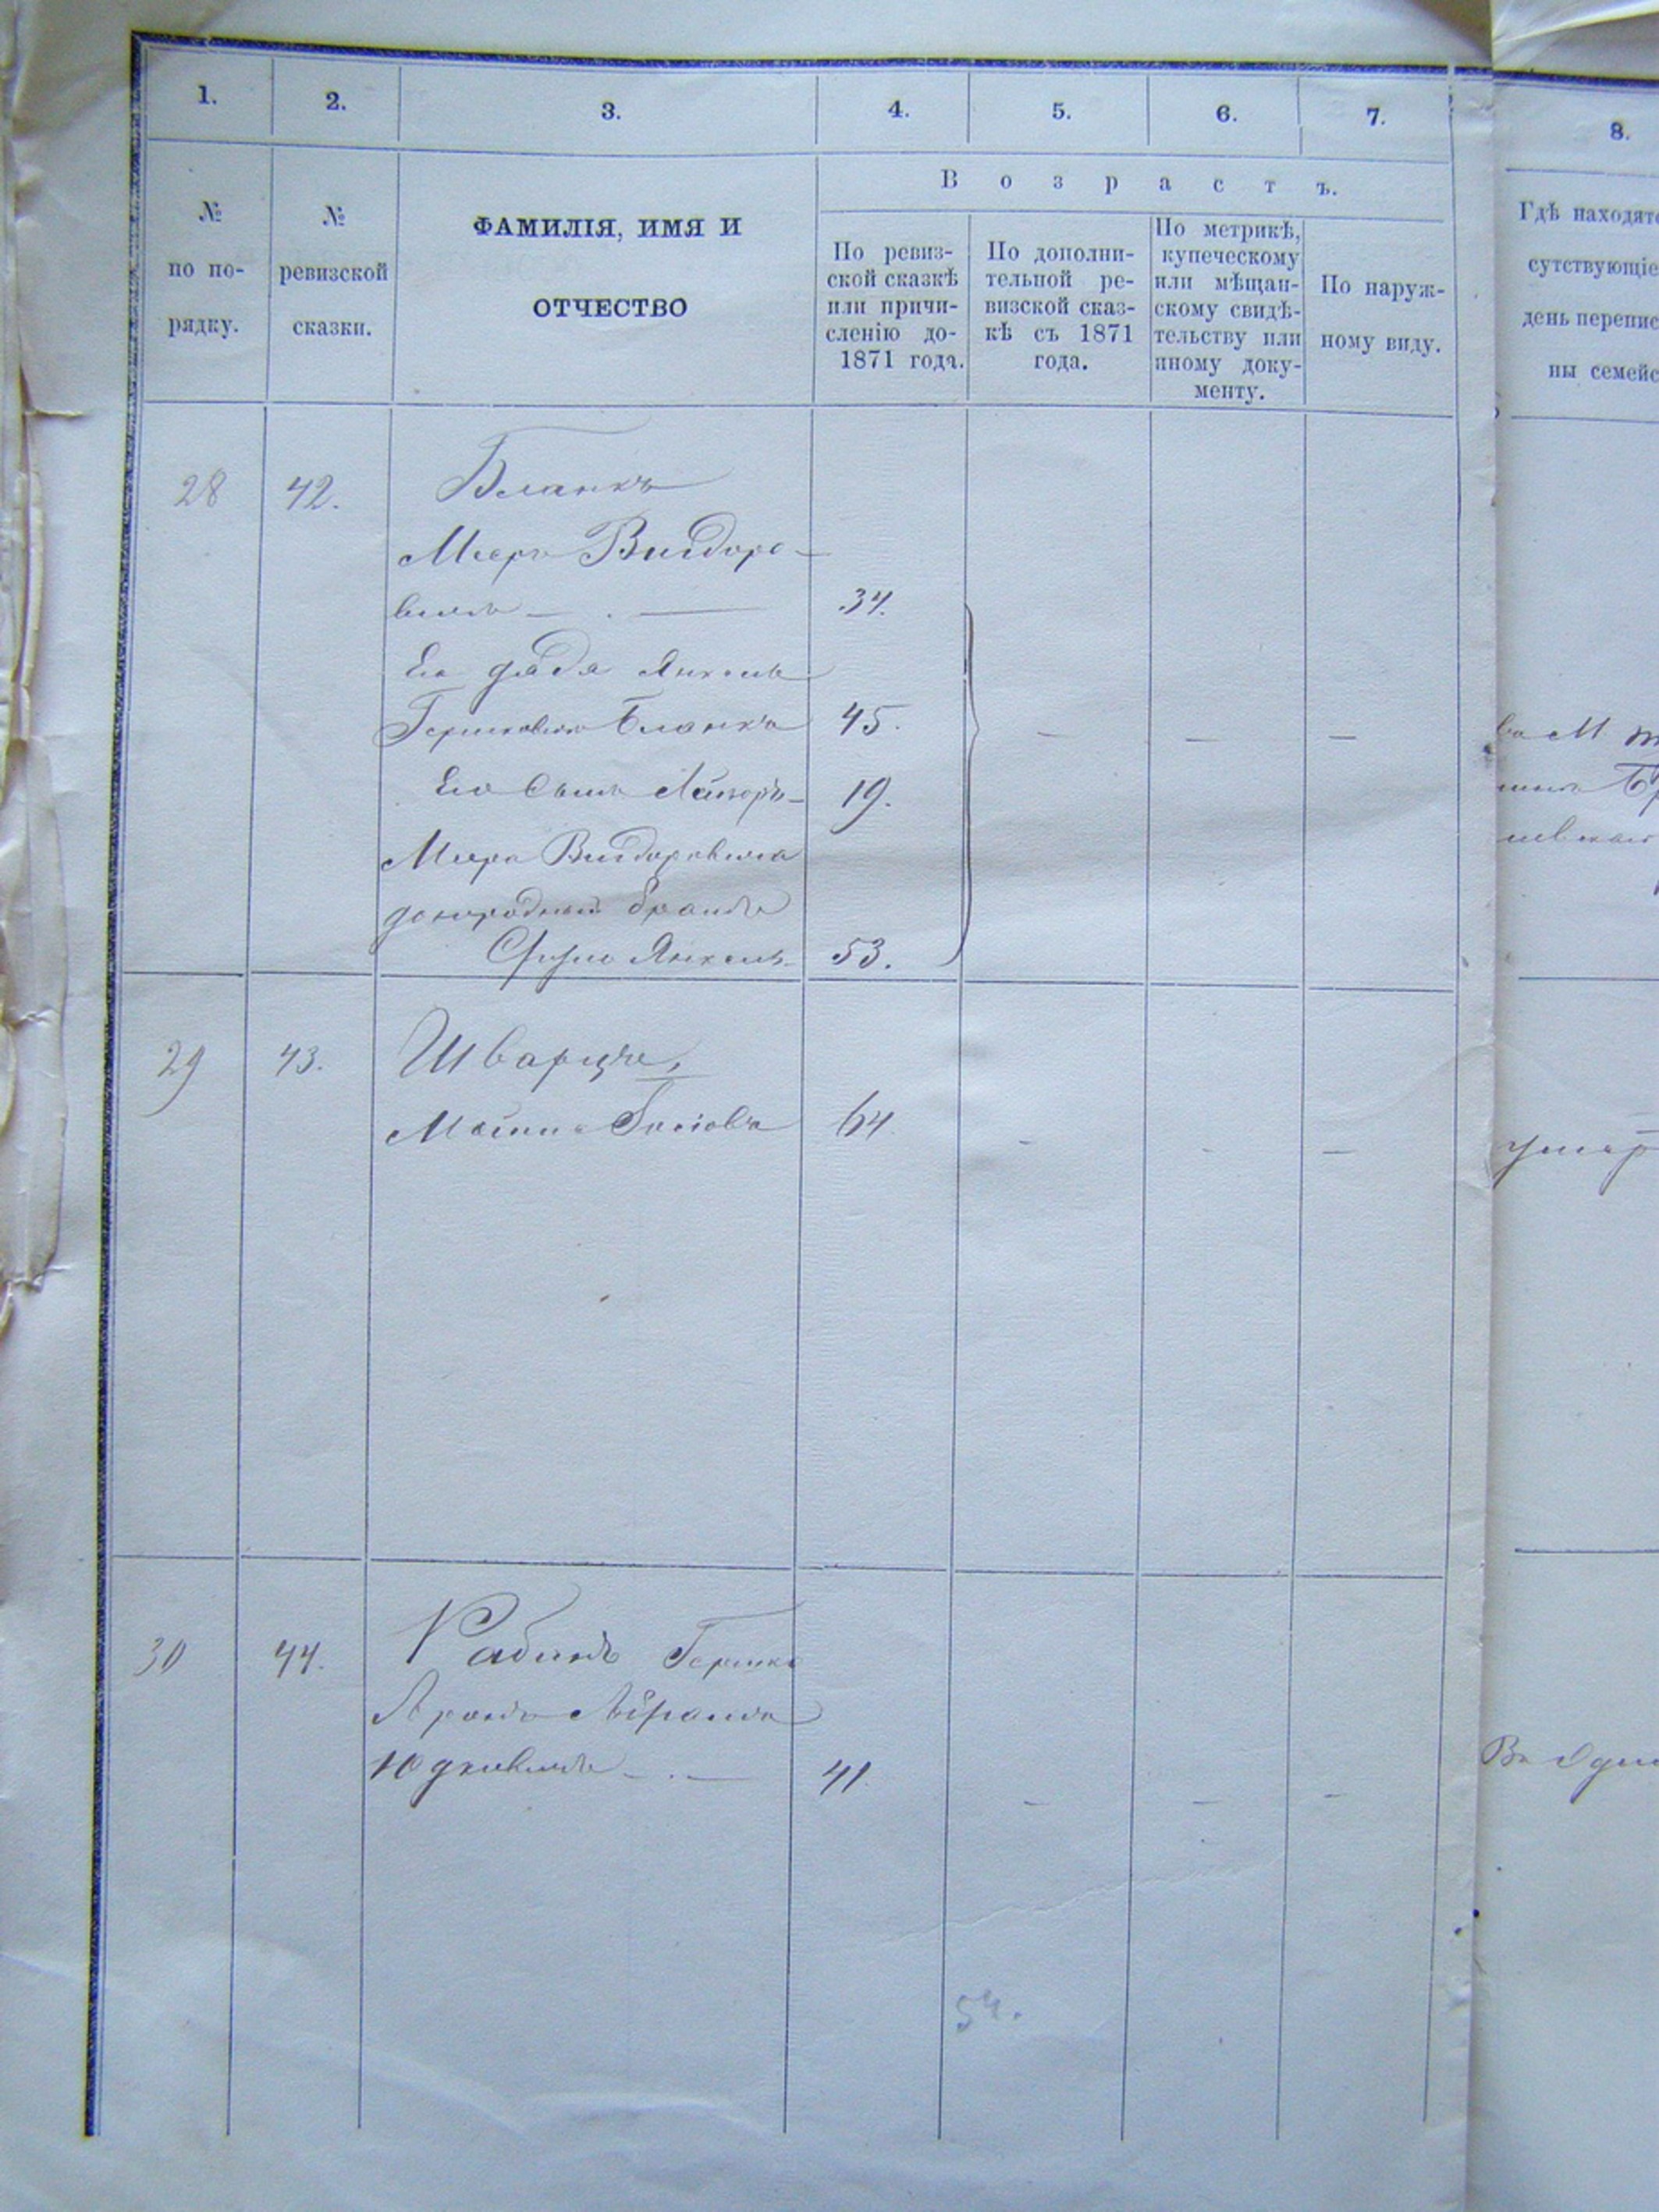 1. 2. 3. 4. 5. 6. 7. 8.
Возрастъ.
№ по по-рядку.
№ ревизской сказки.
ФАМИЛІЯ, ИМЯ И
ОТЧЕСТВО
По ревиз-
ской сказкѣ
или причи-
сленію до-
1871 года.
По дополни-
тельной ре-
визской сказ-
кѣ съ 1871
года.
По метрикѣ,
купеческому
или мѣщан-
скому свидѣ-
тельству или
иному доку-
менту.
По наруж-
ному виду.
Гдѣ находятс
сутствующіе
день перепис
ны семейс
28 42. Бланкъ
Мееръ Видоро-
вичъ 34.
Его дядя Янкель
Гершковичъ Бланкъ 45.
Его сынъ 19.
Меера Видоровича
двоюродный братъ
Янкель 53.
29 43. Шварцъ,
64.
умер
30 44. Рабинъ Гершко
Аронъ Абрамъ
Юдковичъ 41.
54.